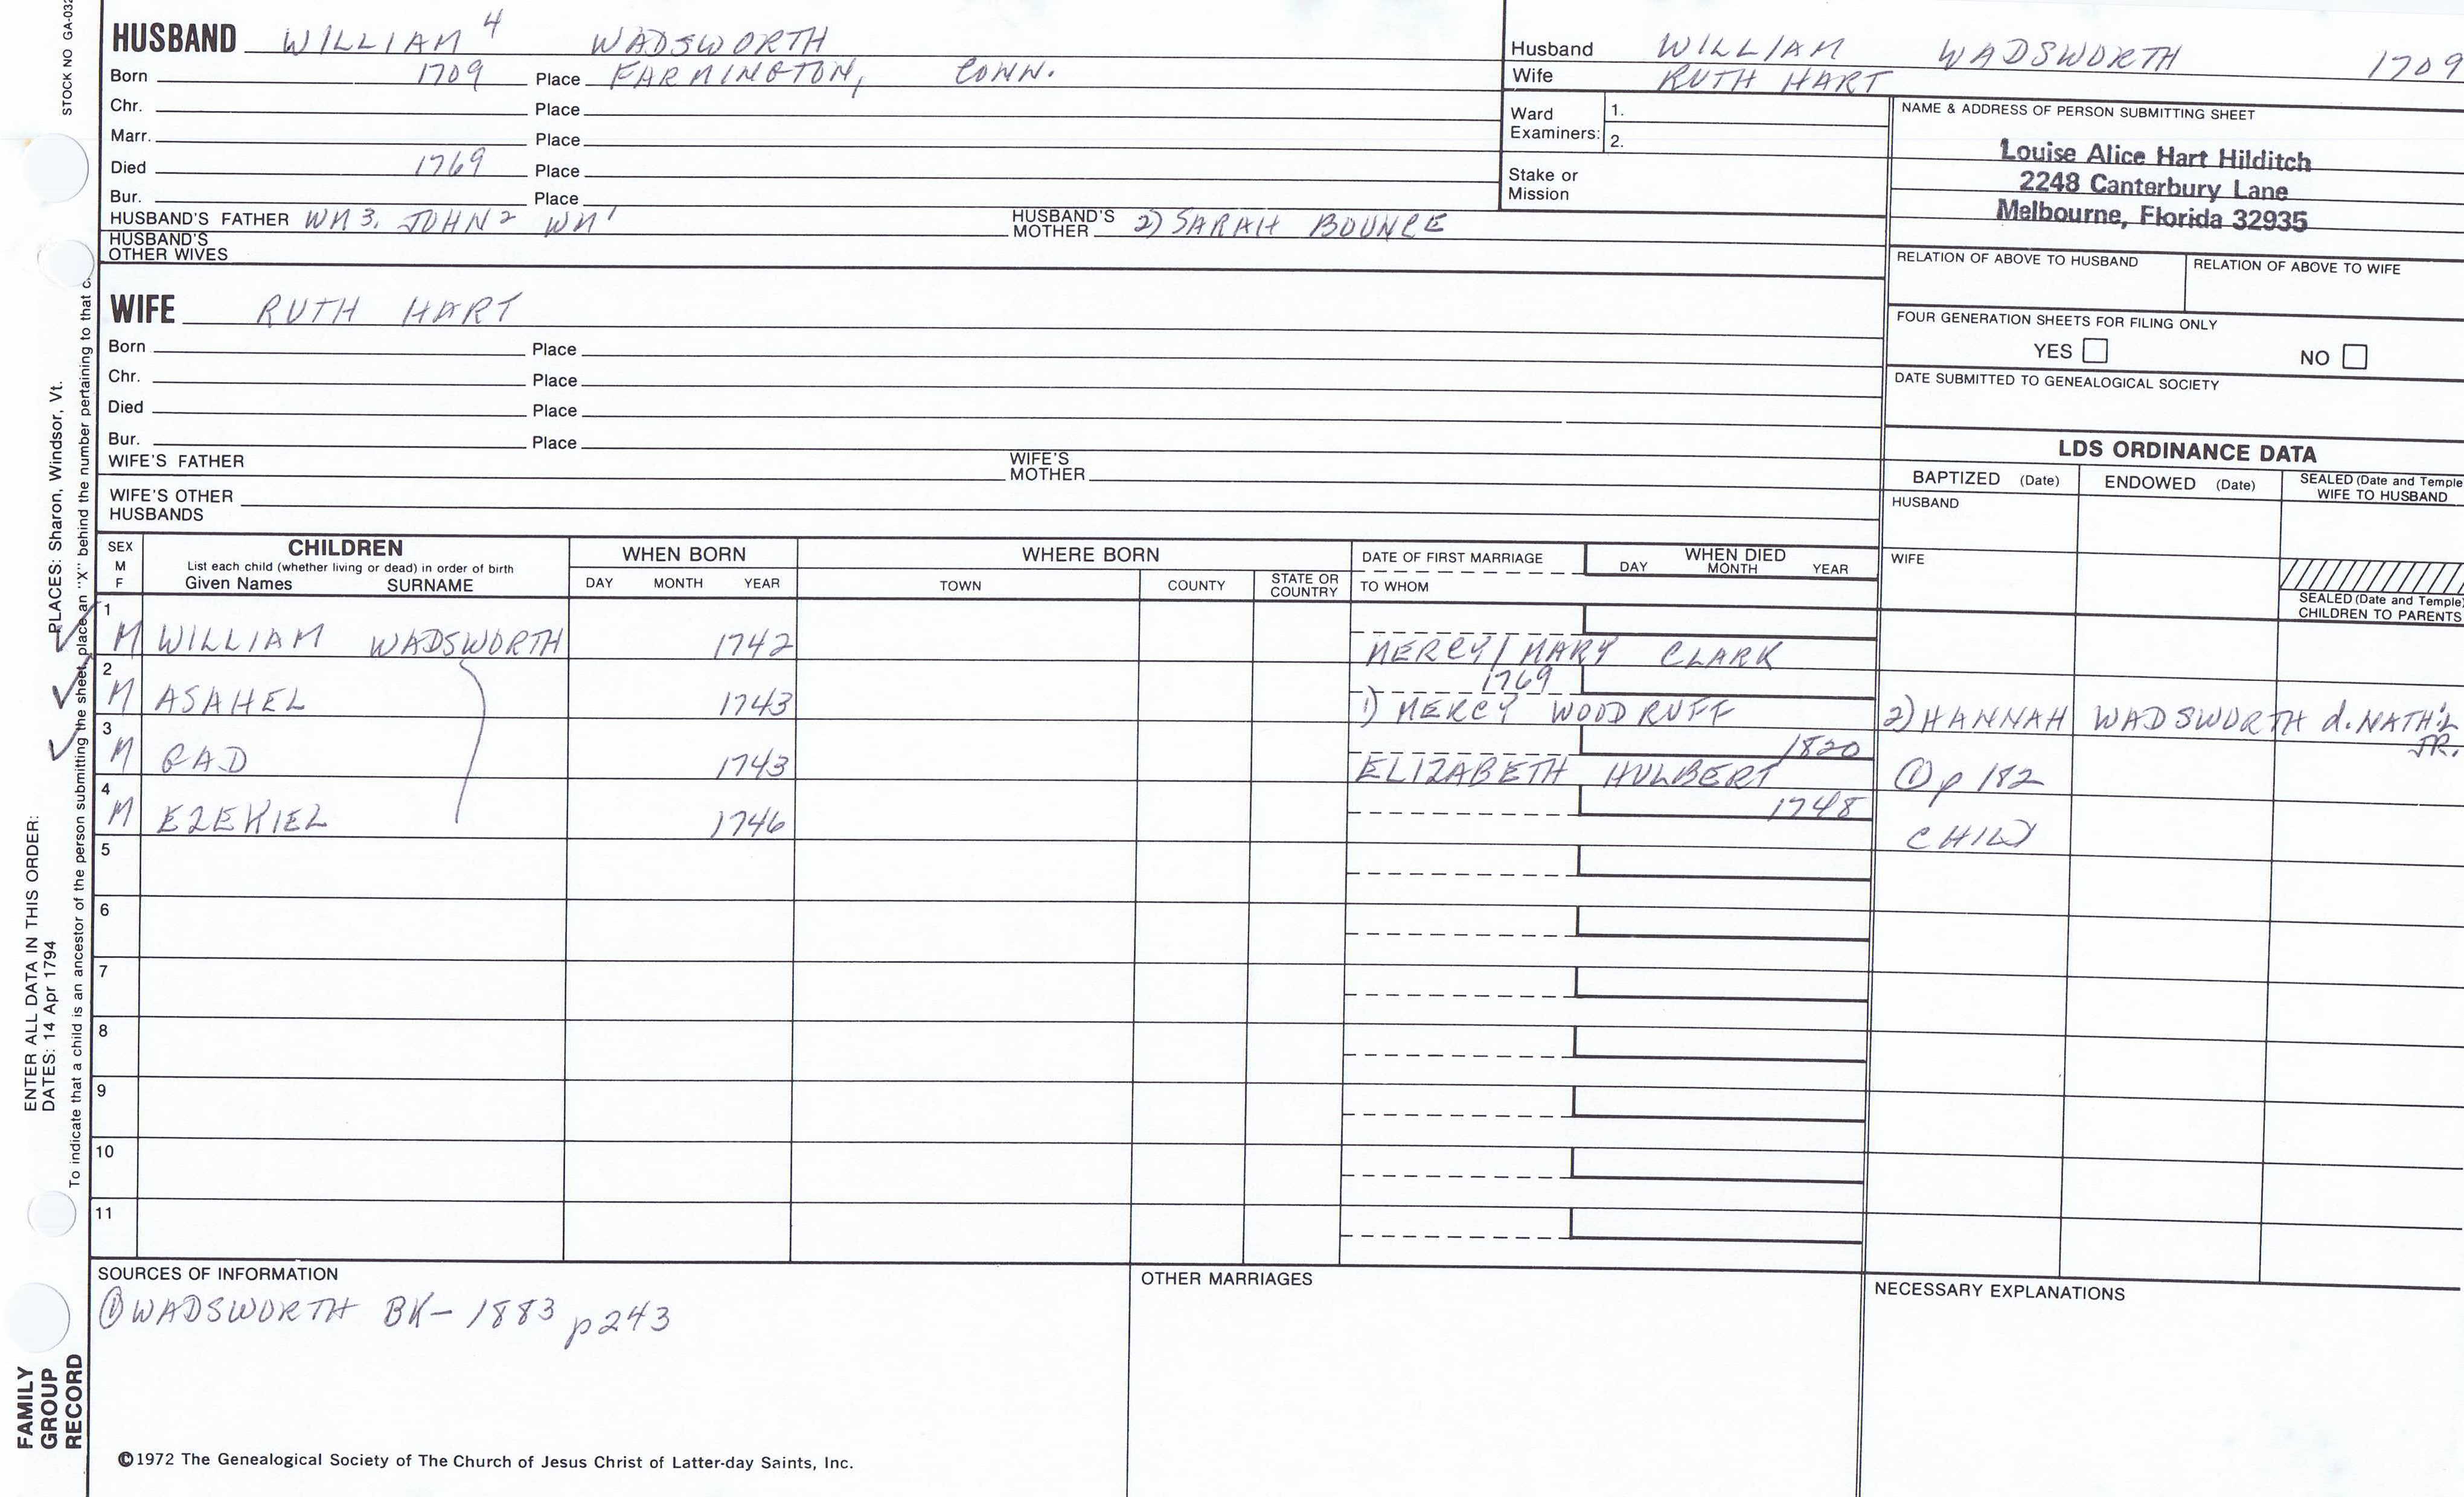 STOCK NO GA-032
HUSBAND WILLIAM 4 WADSWORTH
Born 1709 Place FARMINGTON, CONN.
Chr. Place
Marr. Place
Died 1769 Place
Bur. Place
HUSBAND'S FATHER WM 3, JOHN 2 WM 1 HUSBAND'S MOTHER 2) SARAH BOUNCE
HUSBAND'S OTHER WIVES
WIFE RUTH HART
Born Place
Chr. Place
Died Place
Bur. Place
WIFE'S FATHER WIFE'S MOTHER
WIFE'S OTHER HUSBANDS
Husband WILLIAM WADSWORTH 1709
Wife RUTH HART
Ward Examiners: 1.
2.
Stake or Mission
NAME & ADDRESS OF PERSON SUBMITTING SHEET
Louise Alice Hart Hilditch
2248 Canterbury Lane
Melbourne, Florida 32935
RELATION OF ABOVE TO HUSBAND RELATION OF ABOVE TO WIFE
FOUR GENERATION SHEETS FOR FILING ONLY
YES NO
DATE SUBMITTED TO GENEALOGICAL SOCIETY
LDS ORDINANCE DATA
BAPTIZED (Date) ENDOWED (Date) SEALED (Date and Temple) WIFE TO HUSBAND
HUSBAND
WIFE
SEALED (Date and Temple) CHILDREN TO PARENTS
SEX M F CHILDREN List each child (whether living or dead) in order of birth Given Names SURNAME WHEN BORN DAY MONTH YEAR WHERE BORN TOWN COUNTY STATE OR COUNTRY DATE OF FIRST MARRIAGE TO WHOM WHEN DIED DAY MONTH YEAR
1 M WILLIAM WADSWORTH 1742 MERCY/MARY CLARK
2 M ASAHEL 1743 1769 1) MERCY WOODRUFF 2) HANNAH WADSWORTH d. NATH'L JR.
3 M GAD 1743 1820 ELIZABETH HULBERT ① p 182
4 M EZEKIEL 1746 1748 CHILD
5
6
7
8
9
10
11
SOURCES OF INFORMATION
① WADSWORTH BK- 1883 p243
OTHER MARRIAGES
NECESSARY EXPLANATIONS
©1972 The Genealogical Society of The Church of Jesus Christ of Latter-day Saints, Inc.
FAMILY GROUP RECORD
ENTER ALL DATA IN THIS ORDER:
DATES: 14 Apr 1794 PLACES: Sharon, Windsor, Vt.
To indicate that a child is an ancestor of the person submitting the sheet, place an "X" behind the number pertaining to that c.